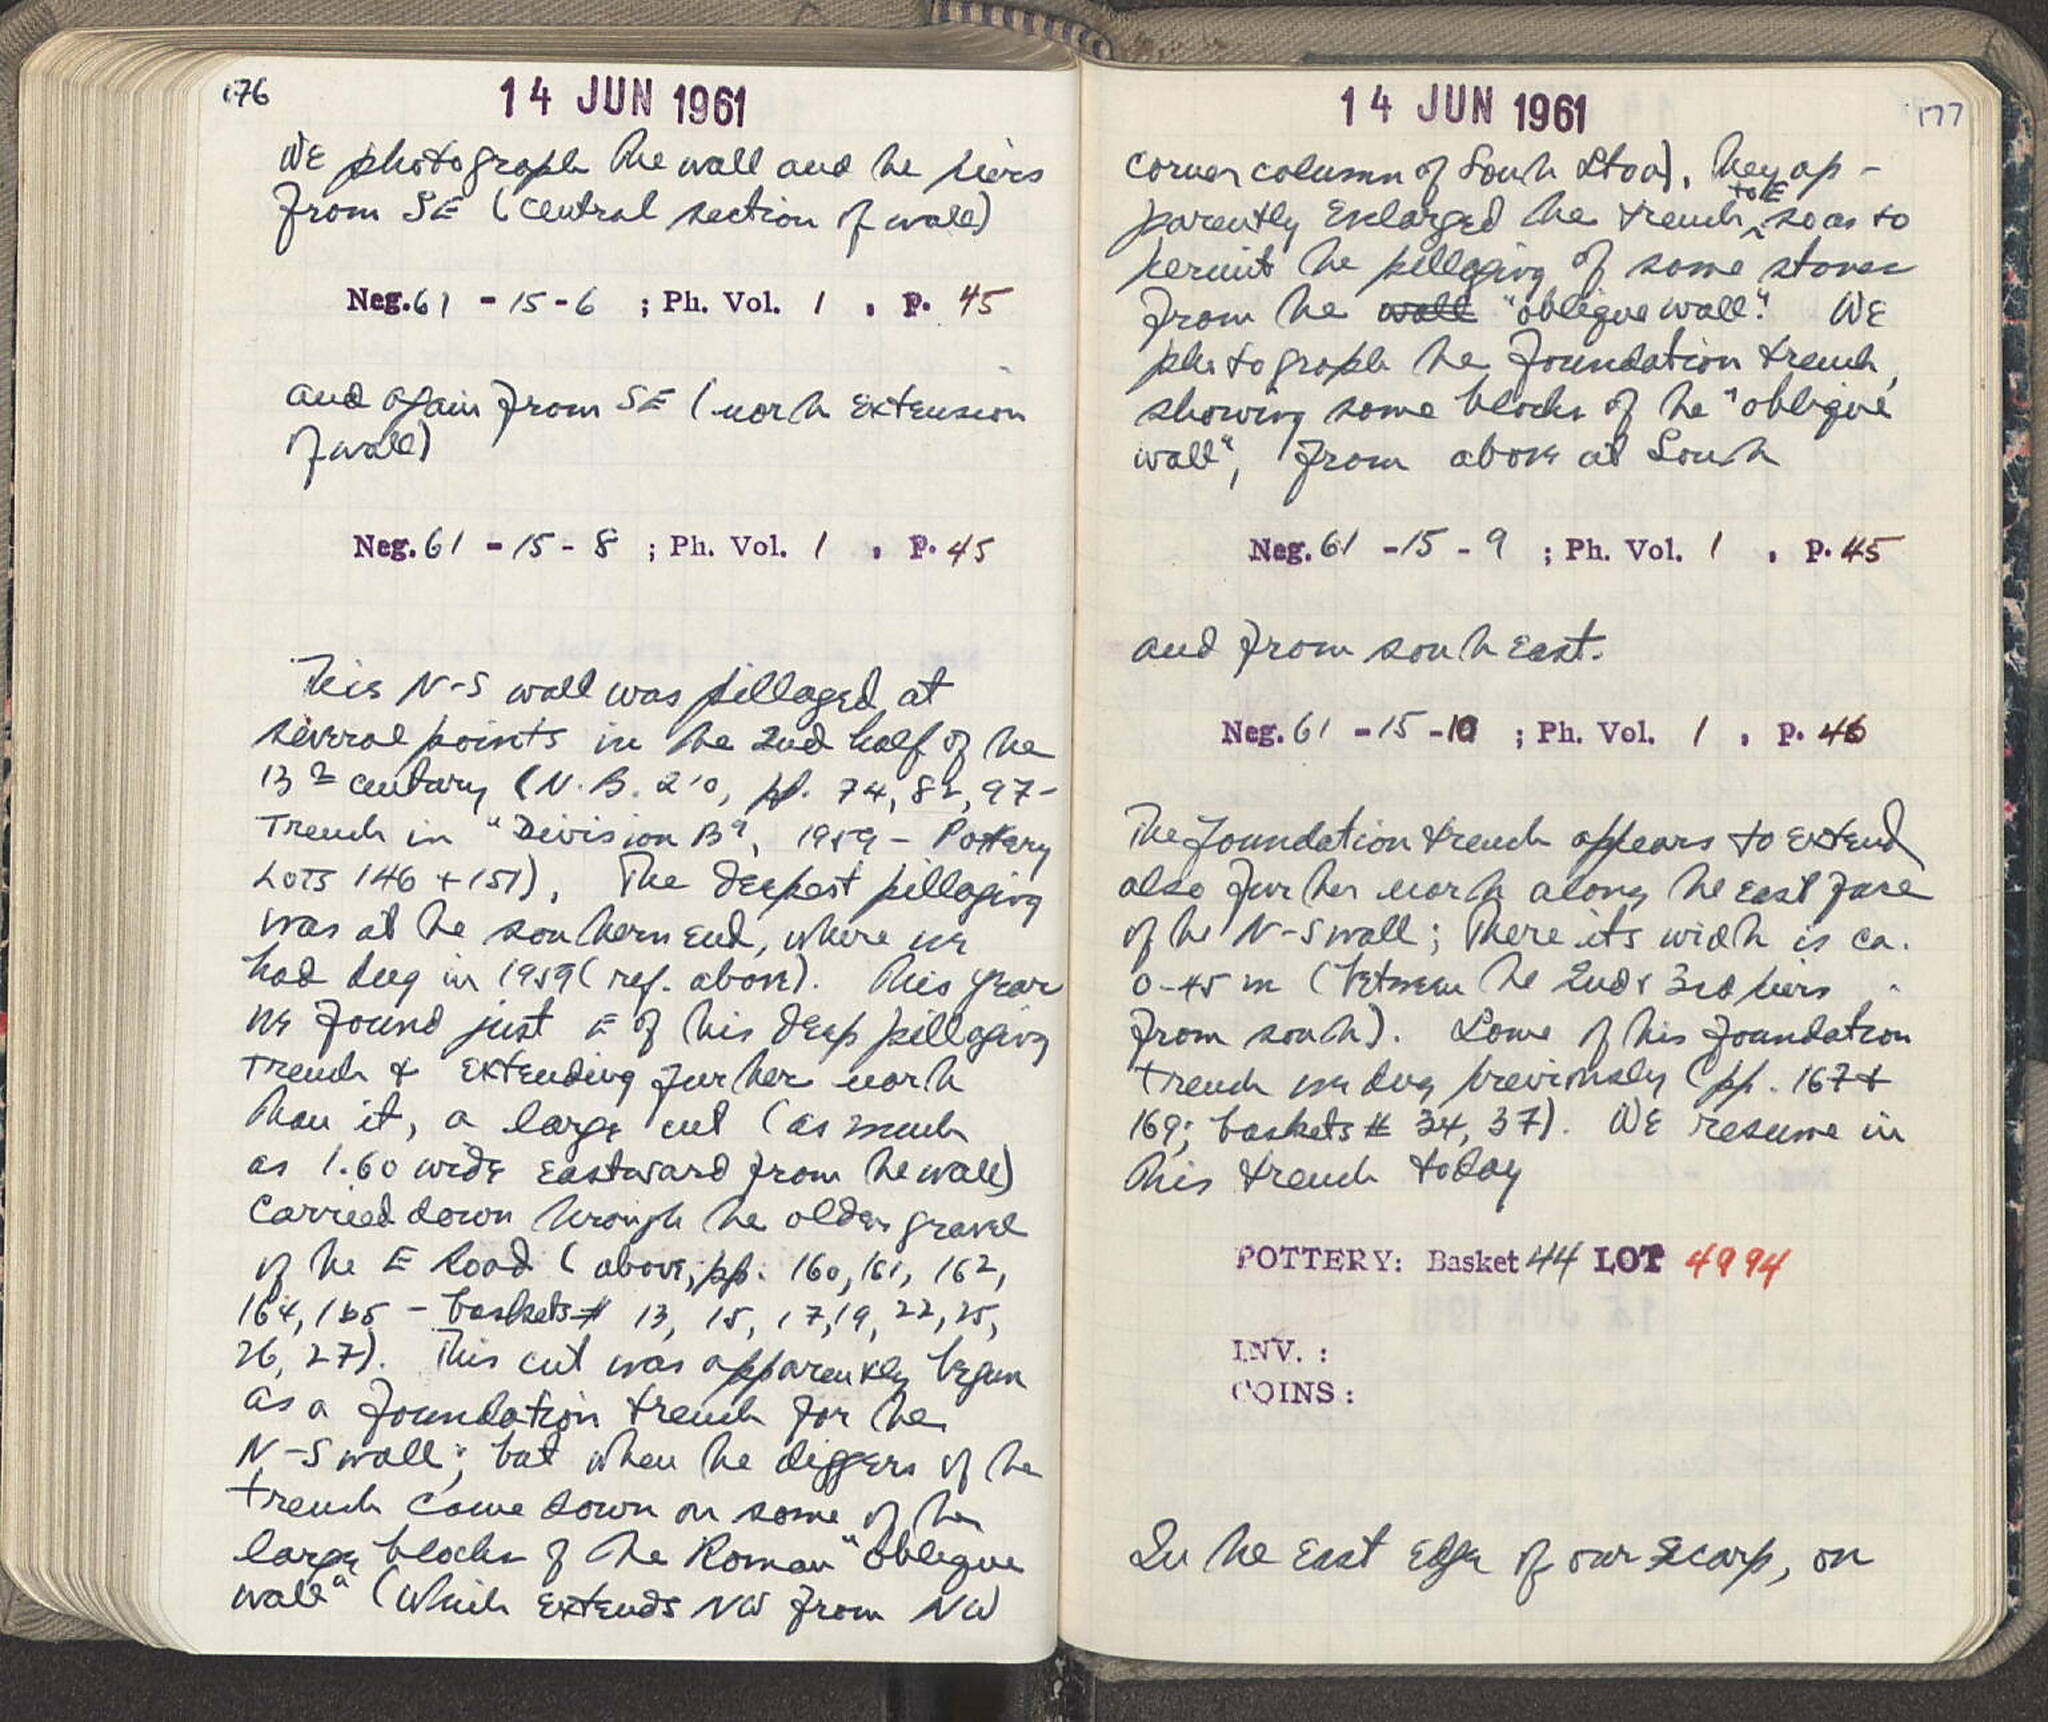 176
14 JUN 1961
We photograph the wall and the piers
from SE (central section of wall)
Neg. 61 - 15 - 6 ; Ph. Vol. 1 , p. 45
and again from SE (north extension
of wall)
Neg. 61 - 15 - 8 ; Ph. Vol. 1 , p. 45
This N-S wall was pillaged at
several points in the 2nd half of the
13th century (N.B. 210, pp. 74, 82, 97-
Trench in "Division B", 1959 - Pottery
Lots 146 + 151). The deepest pillaging
was at the southern end, where we
had dug in 1959 (ref. above). This year
we found just E of this deep pillaging
trench & extending further north
than it, a large cut (as much
as 1.60 wide eastward from the wall)
carried down through the older gravel
of the E Road (above, pp. 160, 161, 162,
164, 165 - baskets # 13, 15, 17, 19, 22, 25,
26, 27). This cut was apparently begun
as a foundation trench for the
N-S wall; but when the diggers of the
trench came down on some of the
large blocks of the Roman "oblique
wall" (which extends NW from NW
14 JUN 1961
177
corner column of South Stoa), they ap-
parently enlarged the trench to E so as to
permit the pillaging of some stones
from the wall "oblique wall". We
photograph the foundation trench,
showing some blocks of the "oblique
wall", from above at South
Neg. 61 - 15 - 9 ; Ph. Vol. 1 , p. 45
and from south east.
Neg. 61 - 15 - 10 ; Ph. Vol. 1 , p. 46
The foundation trench appears to extend
also further north along the east face
of the N-S wall; there its width is ca.
0.45 m (between the 2nd & 3rd piers
from south). Some of this foundation
trench we dug previously (pp. 167 &
169; baskets # 34, 37). We resume in
this trench today
POTTERY: Basket 44 LOT 4994
INV. :
COINS :
In the east edge of our scarp, on